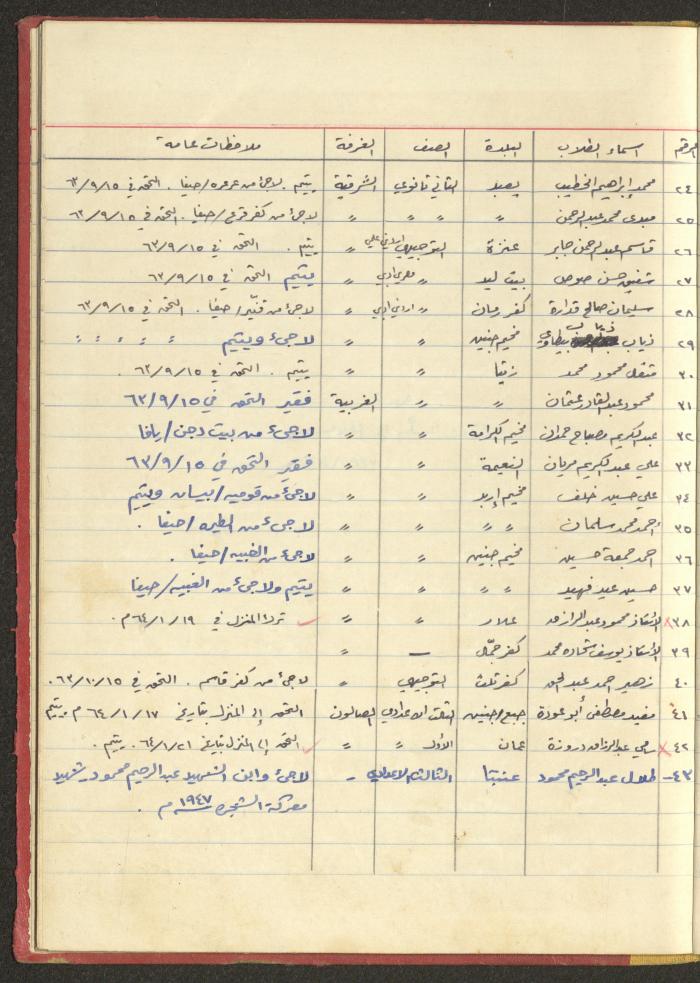 الرقم اسماء الطلاب البلدة الصف الغرفة ملاحظات عامة
٢٤ محمد إبراهيم الخطيب يعبد الثاني ثانوي الشرقية يتيم . لاجئ من عرعره/حيفا . التحق في ٦٣/٩/١٥
٢٥ مهدي محمد عبدالرحمن " " " " لاجئ من كفر قرع/حيفا . التحق في ٦٣/٩/١٥
٢٦ قاسم عبدالرحمن جابر عنزة التوجيهي اردني علمي " يتيم . التحق في ٦٣/٩/١٥
٢٧ شفيق حسن صوص بيت ليد " مصري ادبي " يتيم التحق في ٦٣/٩/١٥
٢٨ سليمان صالح قدارة كفر رمان " اردني ادبي " لاجئ من قنّير/حيفا . التحق في ٦٣/٩/١٥
٢٩ ذياب ذياب بيطاوي مخيم جنين " " لاجئ ويتيم " " " :
٣٠ محمود محمد زيتا " " يتيم . التحق في ٦٣/٩/١٥ .
٣١ محمود عبدالقادر عثمان " " الغربية فقير التحق في ٦٣/٩/١٥
٣٢ عبدالكريم مصباح حمدان مخيم الكرامة " " لاجئ من بيت دجن/يافا
٣٣ علي عبدالكريم مريان النعيمة " " فقير التحق في ٦٣/٩/١٥
٣٤ علي حسين خلف مخيم إربد " " لاجئ من قوميه/بيسان ويتيم
٣٥ أحمد محمد سلمان " " " " لاجئ من الطيره/حيفا .
٣٦ احمد جمعة حسين مخيم جنين " " لاجئ من الغبيه/حيفا .
٣٧ حسين عيد فهيد " " " " يتيم ولاجئ من الغبيه/حيفا
٣٨ الأستاذ محمود عبدالرازق علار " " ترك المنزل في ٦٤/١/١٩م .
٣٩ الأستاذ يوسف شحاده محمد كفر جمّال — "
٤٠ زهير احمد عبدالحق كفر ثلث التوجيهي " لاجئ من كفر قاسم . التحق في ٦٣/١٠/١٥ .
٤١ مفيد مصطفى أبو عودة جبع/جنين الثالث الاعدادي الصالون التحق إلى المنزل بتاريخ ٦٤/١/١٧ م ويتيم
٤٢ سامي عبدالرازق دروزة عمان الأول " " التحق إلى المنزل بتاريخ ٦٤/١/٢١ . يتيم .
٤٣- طلال عبدالرحيم محمود عنبتا الثالث الاعدادي - لاجئ وابن الشهيد عبدالرحيم محمود شهيد
معركة الشجره ١٩٤٧ م .